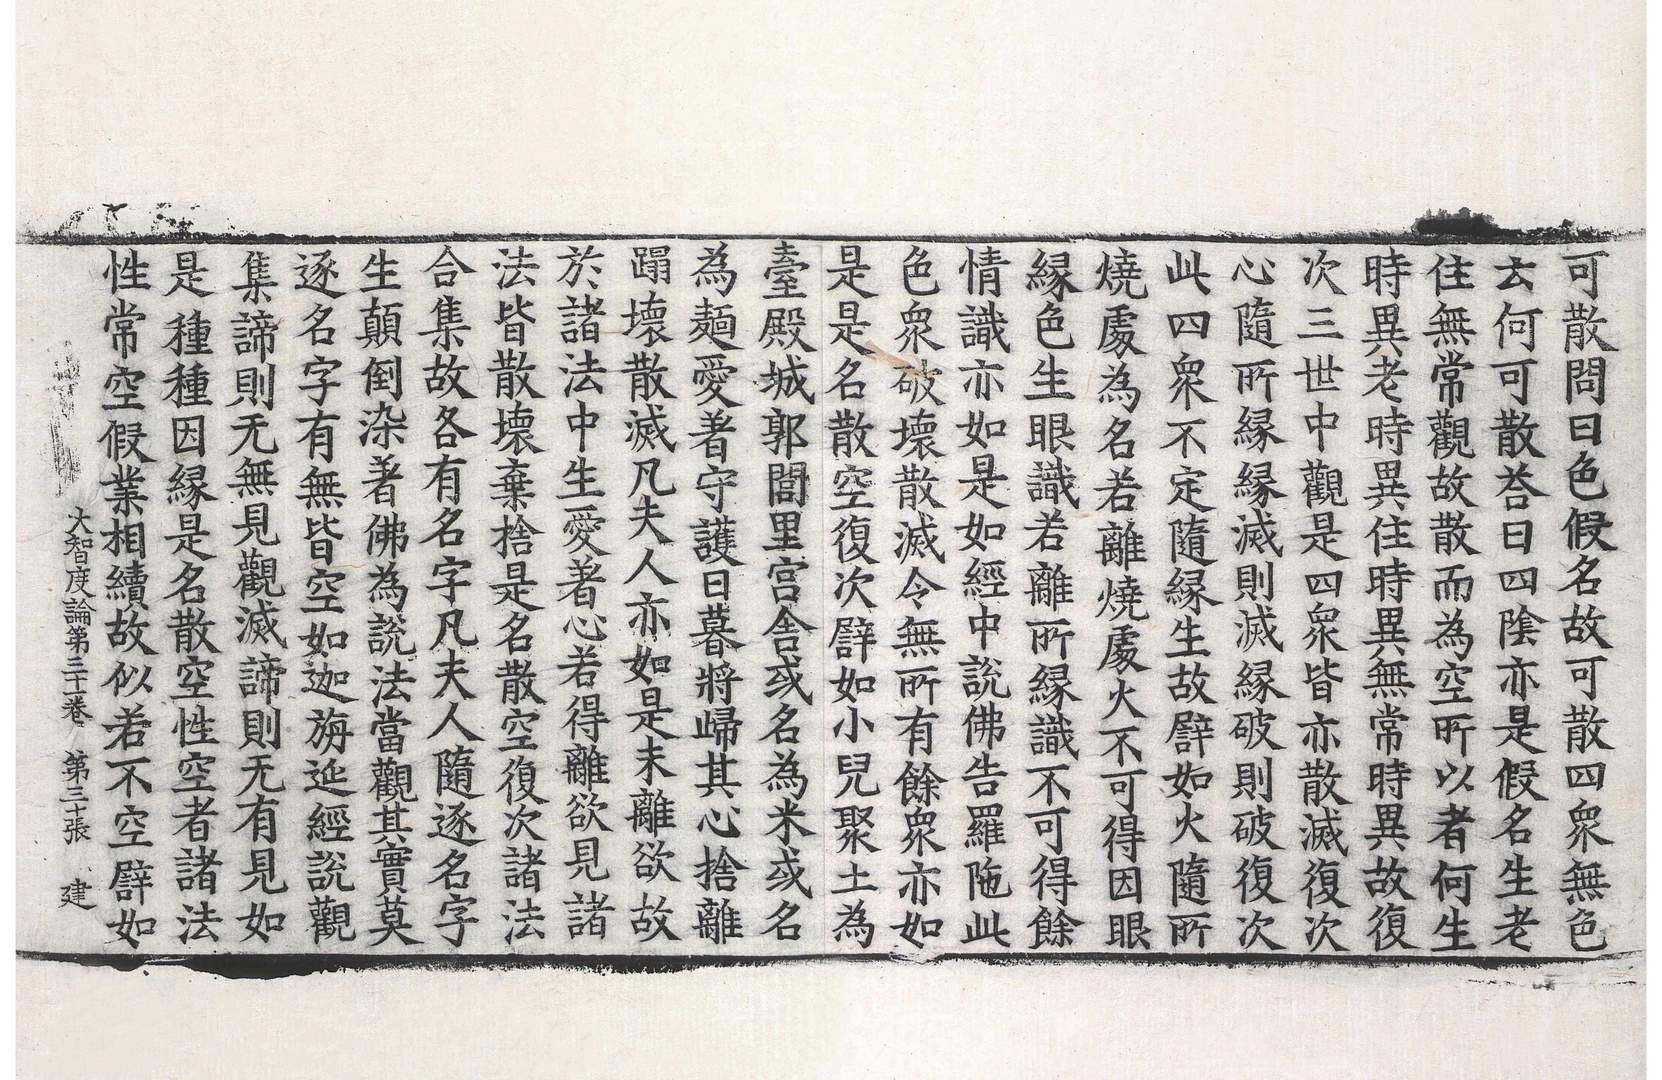 可散問曰色假名故可散四衆無色
去何可散荅曰四陰亦是假名生老
住無常觀故散而為空所以者何生
時異老時異住時異無常時異故復
次三世中觀是四衆皆亦散滅復次
心隨所緣緣滅則滅緣破則破復次
此四衆不定隨緣生故譬如火隨所
燒處為名若離燒處火不可得因眼
緣色生眼識若離所緣識不可得餘
情識亦如是如經中說佛告羅陁此
色衆破壞散滅令無所有餘衆亦如
是是名散空復次譬如小兒聚土為
臺殿城郭閭里宮舍或名為米或名
為麺愛著守護日暮將歸其心捨離
蹋壞散滅凡夫人亦如是未離欲故
於諸法中生愛著心若得離欲見諸
法皆散壞棄捨是名散空復次諸法
合集故各有名字凡夫人隨逐名字
生顛倒染著佛為說法當觀其實莫
逐名字有無皆空如迦旃延經說觀
集諦則无無見觀滅諦則无有見如
是種種因緣是名散空性空者諸法
性常空假業相續故似若不空譬如
大智度論第三十一卷 第三十張 建